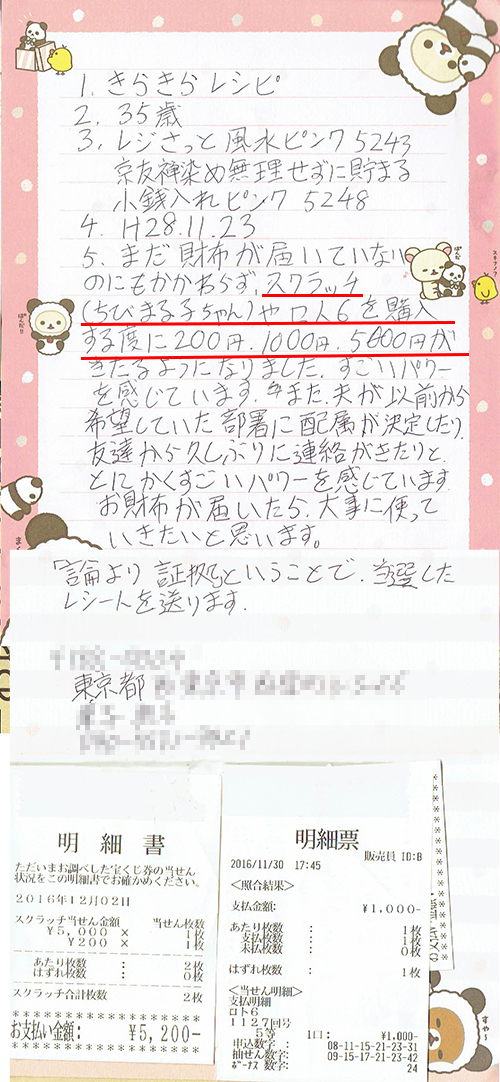 1. きらきらレシピ
2. 35歳
3. レジさっと風水ピンク5243
京友禅染め無理せずに貯まる
小銭入れピンク 5248
4. H28.11.23
5. まだ財布が届いていない
のにもかかわらず、スクラッチ
(ちびまる子ちゃん)やロト6を購入
する度に200円.1000円.5000円が
きたるようになりました。すごいパワー
を感じています。また、夫が以前から
希望していた部署に配属が決定したり、
友達から久しぶりに連絡がきたりと、
とにかくすごいパワーを感じています。
お財布が届いたら、大事に使って
いきたいと思います。
「論より証拠」ということで、当選した
レシートを送ります。
東京都
明細書
ただいまお調べした宝くじ券の当せん
状況をこの明細書でお確かめください。
2016年12月02日
スクラッチ当せん金額 当せん枚数
¥5,000 × 1枚
¥200 × 1枚
あたり枚数 : 2枚
はずれ枚数 : 0枚
スクラッチ合計枚数 2枚
お支払い金額: ¥5,200-
明細票
販売員 ID:B
2016/11/30 17:45
<照合結果>
支払金額: ¥1,000-
あたり枚数 : 1枚
支払枚数 : 1枚
未払枚数 : 0枚
はずれ枚数 : 1枚
<当せん明細>
支払明細
ロト6
1127回号
5等 1口: ¥1,000-
申込数字: 08-11-15-21-23-31
抽せん数字: 09-15-17-21-23-42
ボーナス数字: 24